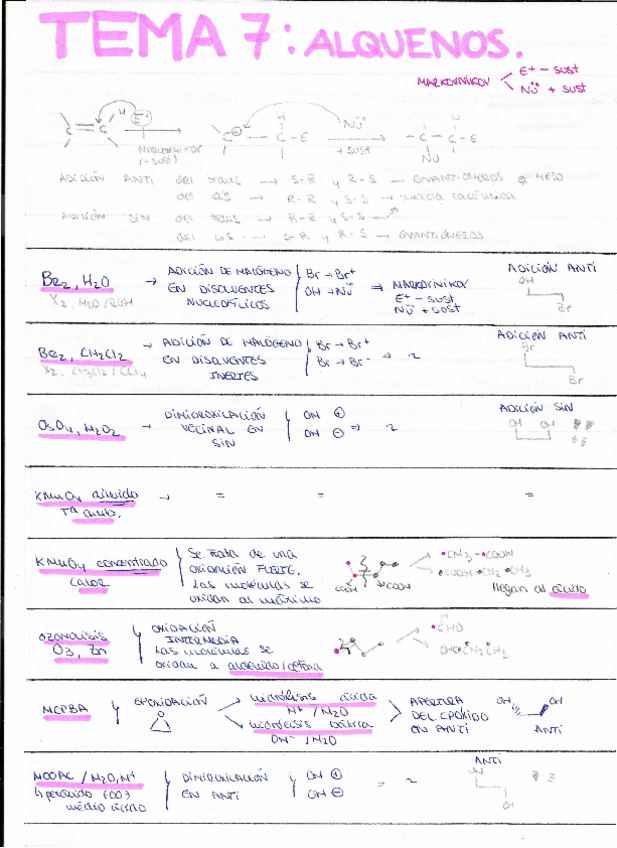 TEMA 7: ALQUENOS.
MARKOVNIKOV
E+ - sust
Nü + sust
MARKOVNIKOV
(- sust)
Nü
+ sust
Nu
ADICIÓN ANTI del trans → S-R y R-S → ENANTIÓMEROS o MESO
del CIS → R-R y S-S → mezcla racémica
ADICIÓN SIN del trans → R-R y S-S
del cis → S-R y R-S → ENANTIÓMEROS
Br2, H2O
X2, H2O/ROH
→ ADICIÓN DE HALÓGENO
EN DISOLVENTES
NUCLEOFÍLICOS
Br → Br+
OH → Nü
⇒ MARKOVNIKOV
E+ - sust
Nü + sust
ADICIÓN ANTI
OH
Br
Br2, CH2Cl2
X2, CH2Cl2 / CCl4
→ ADICIÓN DE HALÓGENO
EN DISOLVENTES
INERTES
Br → Br+
Br → Br-
ADICIÓN ANTI
Br
Br
OsO4, H2O2
→ DIHIDROXILACIÓN
VECINAL EN
SIN
OH ⊕
OH ⊖
ADICIÓN SIN
OH OH
KMnO4 diluido
Tª amb.
→ = = =
KMnO4 concentrado
calor
Se trata de una
oxidación FUERTE.
Las moléculas se
oxidan al máximo
COOH
COOH
CH3 - COOH
COOH CH2 CH3
llegan al ácido
OZONOLISIS
O3, Zn
OXIDACIÓN
INTERMEDIA
Las moléculas se
oxidan a aldehído/cetona
CHO
OHC CH2CH3
MCPBA
EPOXIDACIÓN
O
hidrólisis ácida
H+ / H2O
hidrólisis básica
OH- / H2O
APERTURA
DEL EPÓXIDO
EN ANTI
OH OH
ANTI
HOOAC / H2O, H+
↳ peróxido (OO)
medio ácido
DIHIDROXILACIÓN
EN ANTI
OH ⊕
OH ⊖
ANTI
OH
OH